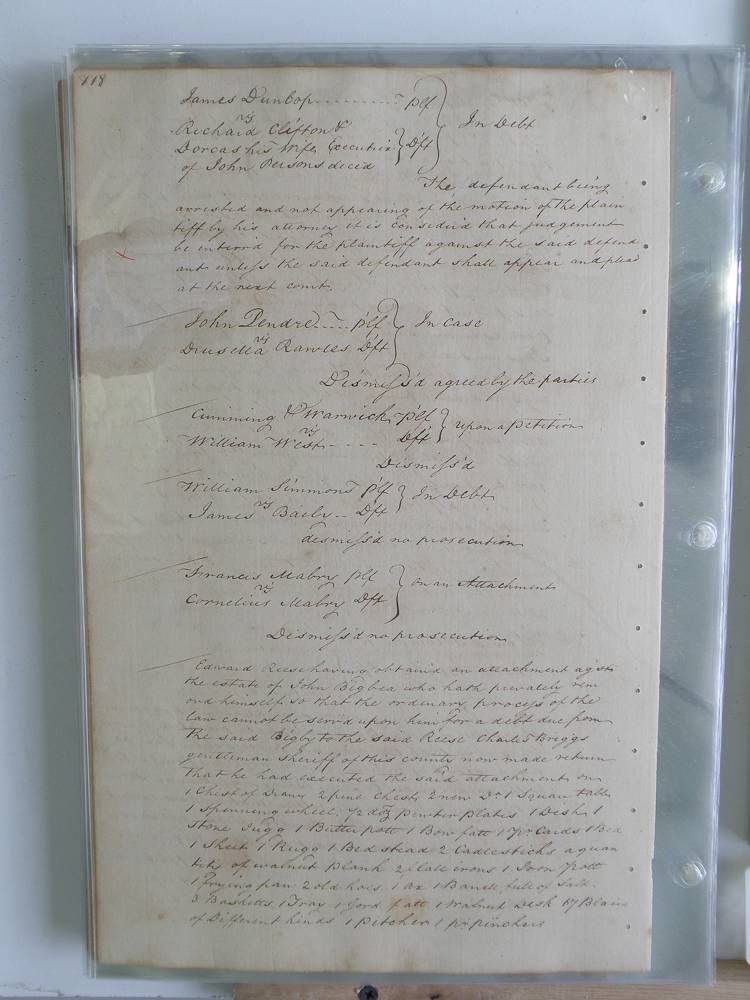 118
James Dunlop - - - - - - - - plf
vs
In Debt
Richard Clifton &
Dorcas his Wife Executrix Dft
of John Persons deced
The defendant being
arrested and not appearing of the motion of the plain
tiff by his attorney it is Considerd that judgement
be enter'd for the plaintiff against the said defend
ant unless the said defendant shall appear and plead
at the next court.
John Pendred - - - plf In Case
vs
Drusella Rawles Dft
Dismiss'd agreed by the parties
Cumming & Warwick plf upon a petition
vs
William West - - - - Dft
Dismiss'd
William Simmons plf In Debt
vs
James Baely - - Dft
dismiss'd no prosecution
Francis Mabry plf on an Attachment
vs
Cornelius Mabry Dft
Dismiss'd no prosecution
Edward Reese having obtain'd an attachment agst
the estate of John Bigbea who hath privately rem
ovd himself so that the ordinary process of the
law cannot be serv'd upon him for a debt due from
the said Bigby to the said Reese Charles Briggs
gentleman sheriff of this county now made return
that he had executed the said attachment on
1 Chest of Draws 2 pine Chests 2 new Do 1 Square table
1 Spenning wheel 1/2 doz pewter plates 1 Dish 1
Stone Jugg 1 Butter pott 1 Bow fatt 1 pr Cards 1 Bed
1 Sheet 1 Rugg 1 Bed stead 2 Cadlesticks a quan
tity of walnut plank 2 flatt irons 1 Iron pott
1 frying pan 2 old hoes 1 ax 1 Barrel full of Salt
3 Basketts 1 Tray 1 Gord fatt 1 Walnut Desk 17 Plains
of Different kinds 1 Pitcher 1 pr pinchers